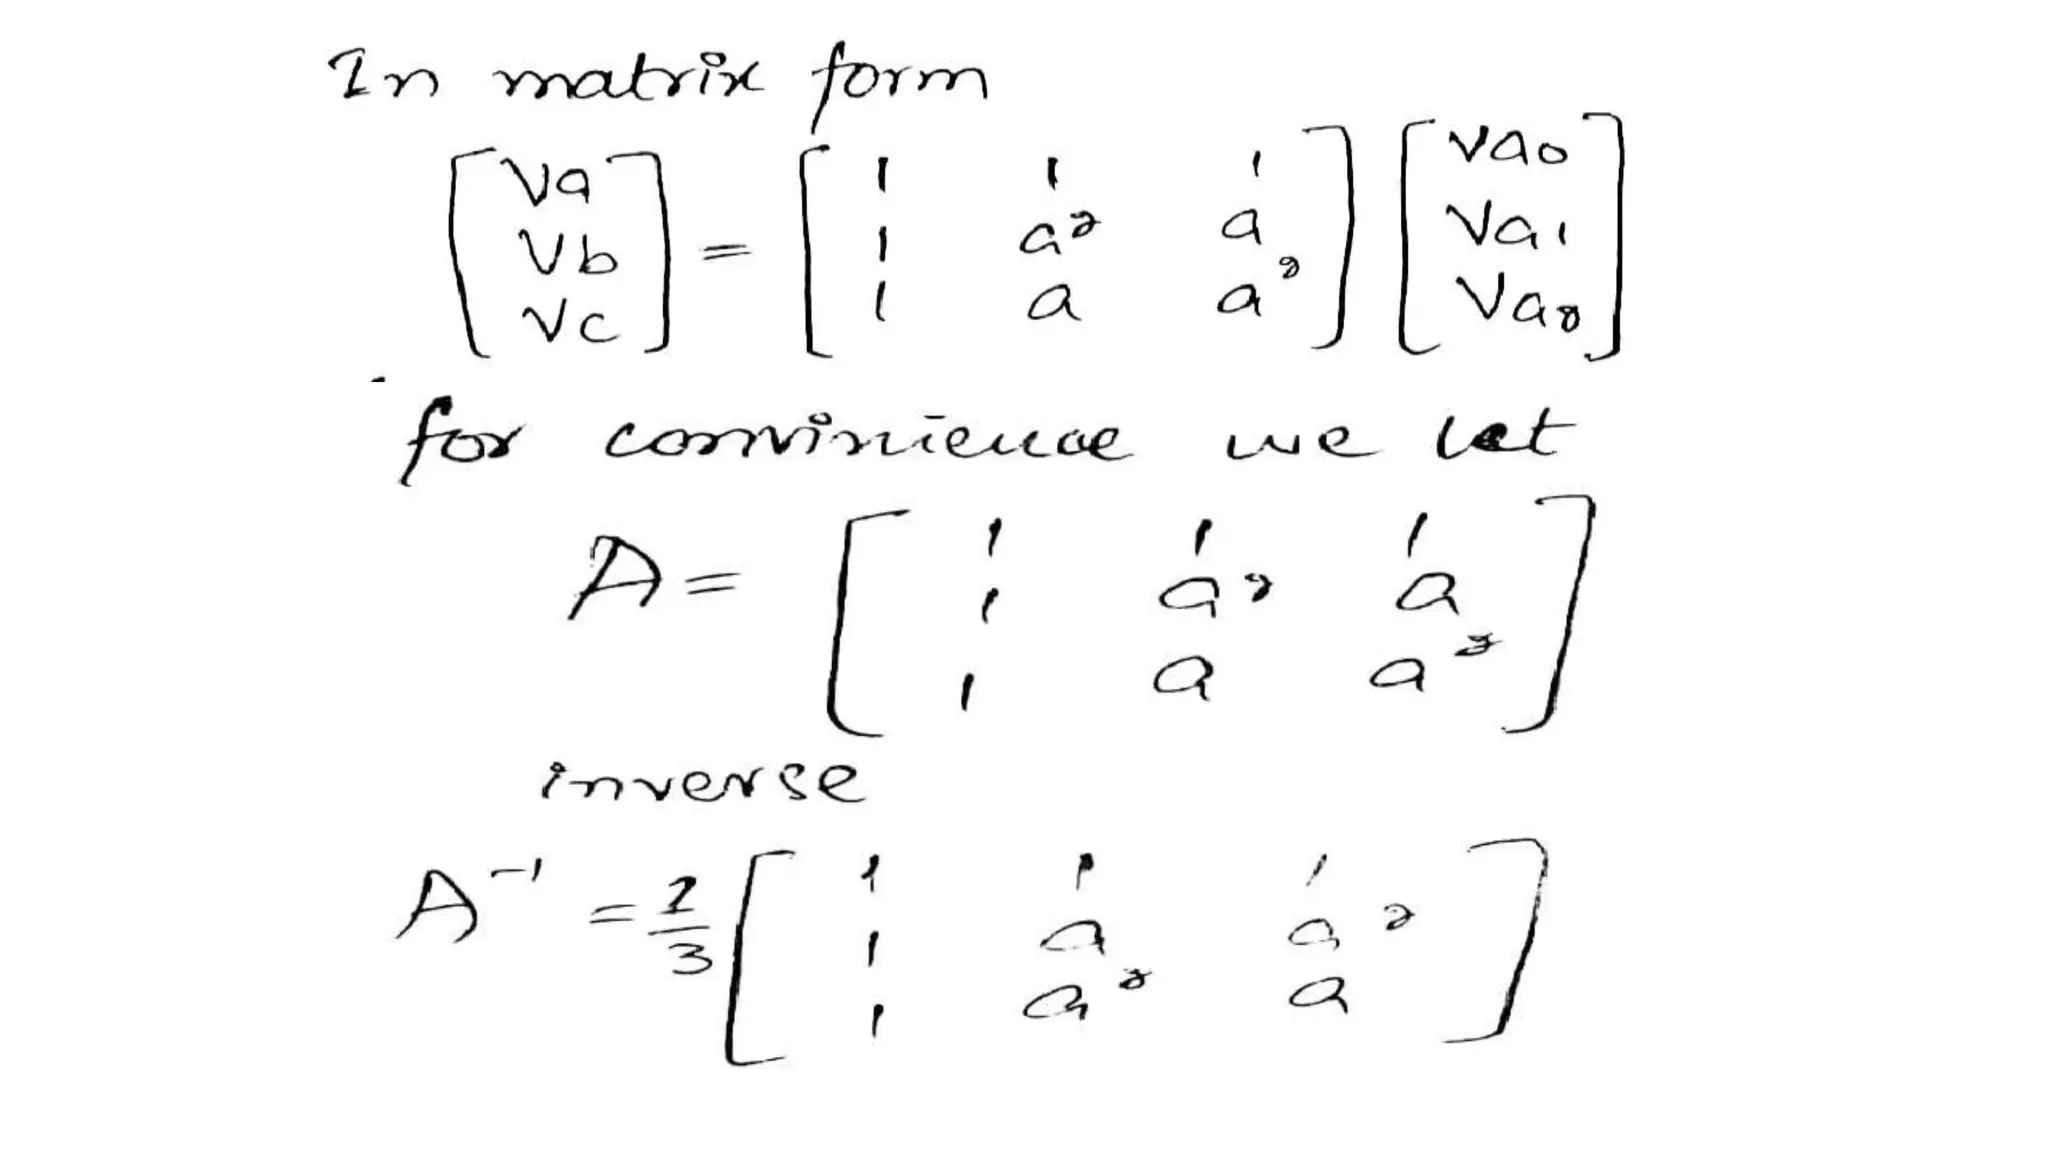 In matrix form
[Va Vb Vc] = [1 1 1; 1 a² a; 1 a a²] [Va0 Va1 Va2]
for convinience we let
A = [1 1 1; 1 a² a; 1 a a²]
inverse
A⁻¹ = 1/3 [1 1 1; 1 a a²; 1 a² a]